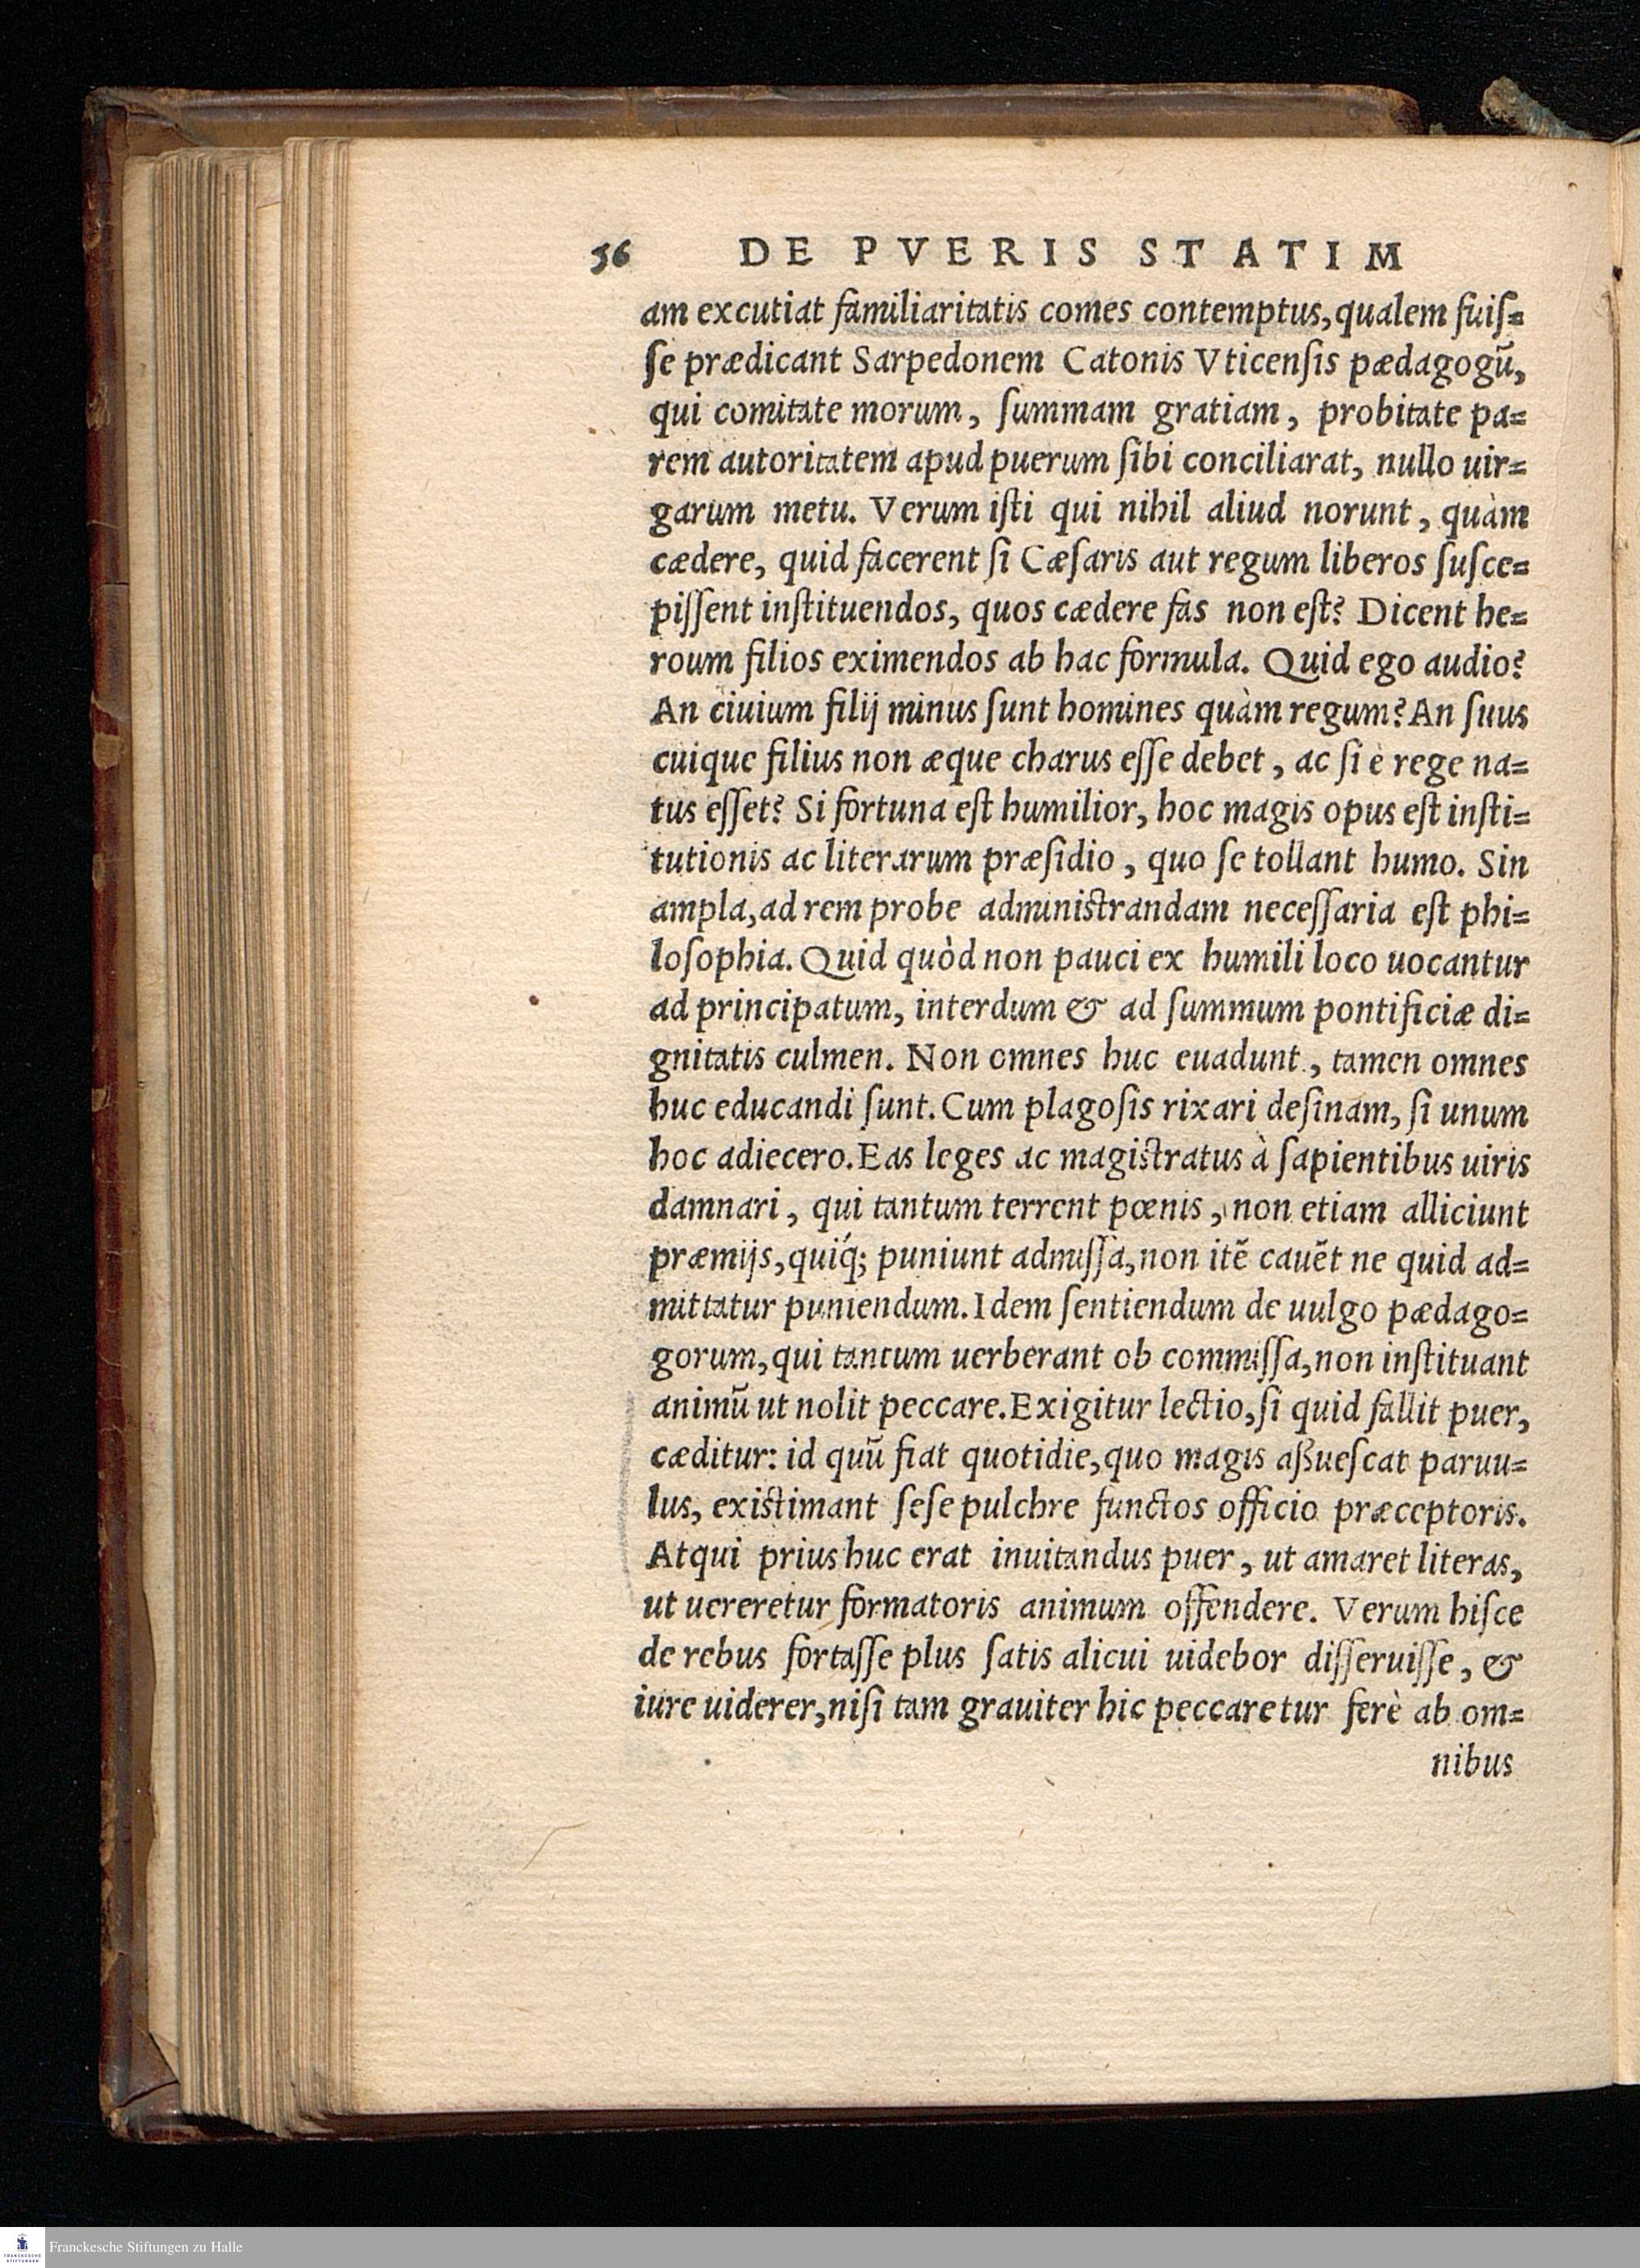 56 DE PVERIS STATIM
am excutiat familiaritatis comes contemptus, qualem fuiſ=
ſe prædicant Sarpedonem Catonis Vticenſis pædagogũ,
qui comitate morum, ſummam gratiam, probitate pa=
rem autoritatem apud puerum ſibi conciliarat, nullo uir=
garum metu. Verum iſti qui nihil aliud norunt, quàm
cædere, quid facerent ſi Cæſaris aut regum liberos ſuſce=
piſſent inſtituendos, quos cædere fas non eſt? Dicent he=
roum filios eximendos ab hac formula. Quid ego audio?
An ciuium filij minus ſunt homines quàm regum? An ſuus
cuique filius non æque charus eſſe debet, ac ſi è rege na=
tus eſſet? Si fortuna eſt humilior, hoc magis opus eſt inſti=
tutionis ac literarum præſidio, quo ſe tollant humo. Sin
ampla, ad rem probe adminiſtrandam neceſſaria eſt phi=
loſophia. Quid quòd non pauci ex humili loco uocantur
ad principatum, interdum & ad ſummum pontificiæ di=
gnitatis culmen. Non omnes huc euadunt, tamen omnes
huc educandi ſunt. Cum plagoſis rixari deſinam, ſi unum
hoc adiecero. Eas leges ac magiſtratus à ſapientibus uiris
damnari, qui tantum terrent pœnis, non etiam alliciunt
præmijs, quiq́; puniunt admiſſa, non itẽ cauẽt ne quid ad=
mittatur puniendum. Idem ſentiendum de uulgo pædago=
gorum, qui tantum uerberant ob commiſſa, non inſtituant
animũ ut nolit peccare. Exigitur lectio, ſi quid fallit puer,
cæditur: id quũ fiat quotidie, quo magis aßueſcat paruu=
lus, exiſtimant ſeſe pulchre functos officio præceptoris.
Atqui prius huc erat inuitandus puer, ut amaret literas,
ut uereretur formatoris animum offendere. Verum hiſce
de rebus fortaſſe plus ſatis alicui uidebor diſſeruiſſe, &
iure uiderer, niſi tam grauiter hic peccaretur ferè ab om=
nibus
Franckesche Stiftungen zu Halle
FRANCKESCHE
STIFTUNGEN